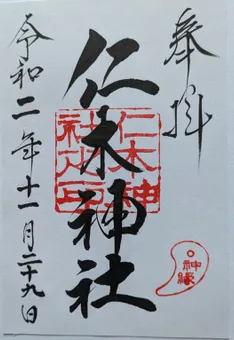 奉拝
仁木神社
仁木神社之印
神縁
令和二年十一月二十九日